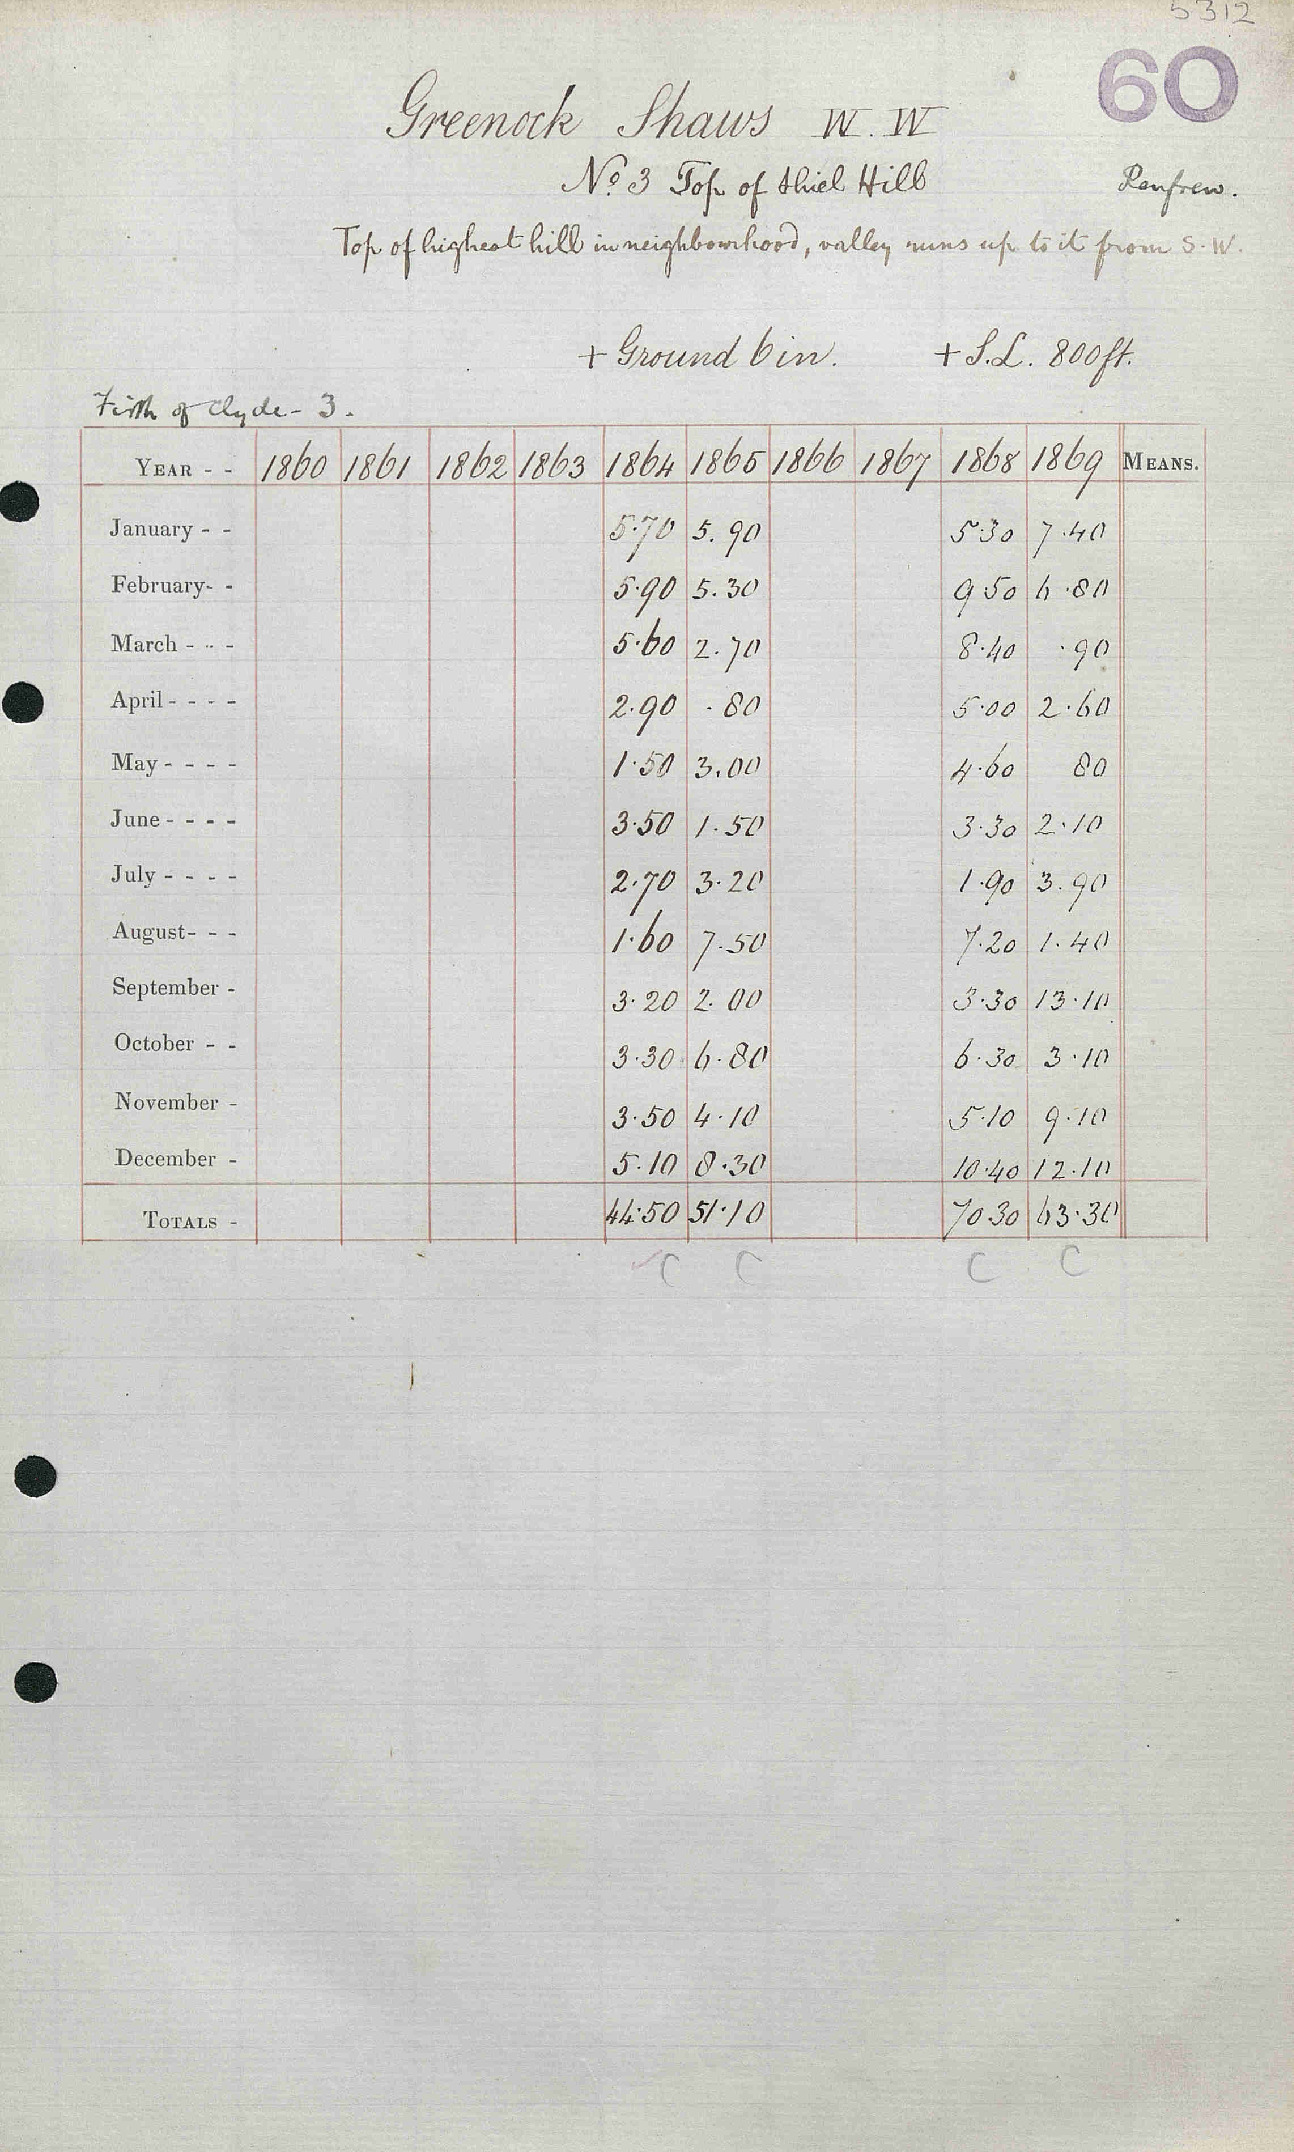 5312
60
Greenock Shaws W. W
No. 3 Top of Shiel Hill Renfrew.
Top of highest hill in neighbourhood, valley runs up to it from S.W.
+ Ground 6 in. + S.L. 800 ft.
Firth of Clyde - 3.
YEAR - - 1860 1861 1862 1863 1864 1865 1866 1867 1868 1869 MEANS.
January - - 5.70 5.90 5.30 7.40
February- - 5.90 5.30 9.50 6.80
March - - - 5.60 2.70 8.40 .90
April - - - - 2.90 .80 5.00 2.60
May - - - - 1.50 3.00 4.60 80
June - - - - 3.50 1.50 3.30 2.10
July - - - - 2.70 3.20 1.90 3.90
August- - - 1.60 7.50 7.20 1.40
September - 3.20 2.00 3.30 13.10
October - - 3.30 6.80 6.30 3.10
November - 3.50 4.10 5.10 9.10
December - 5.10 8.30 10.40 12.10
TOTALS - 44.50 51.10 70.30 63.30
C C C C